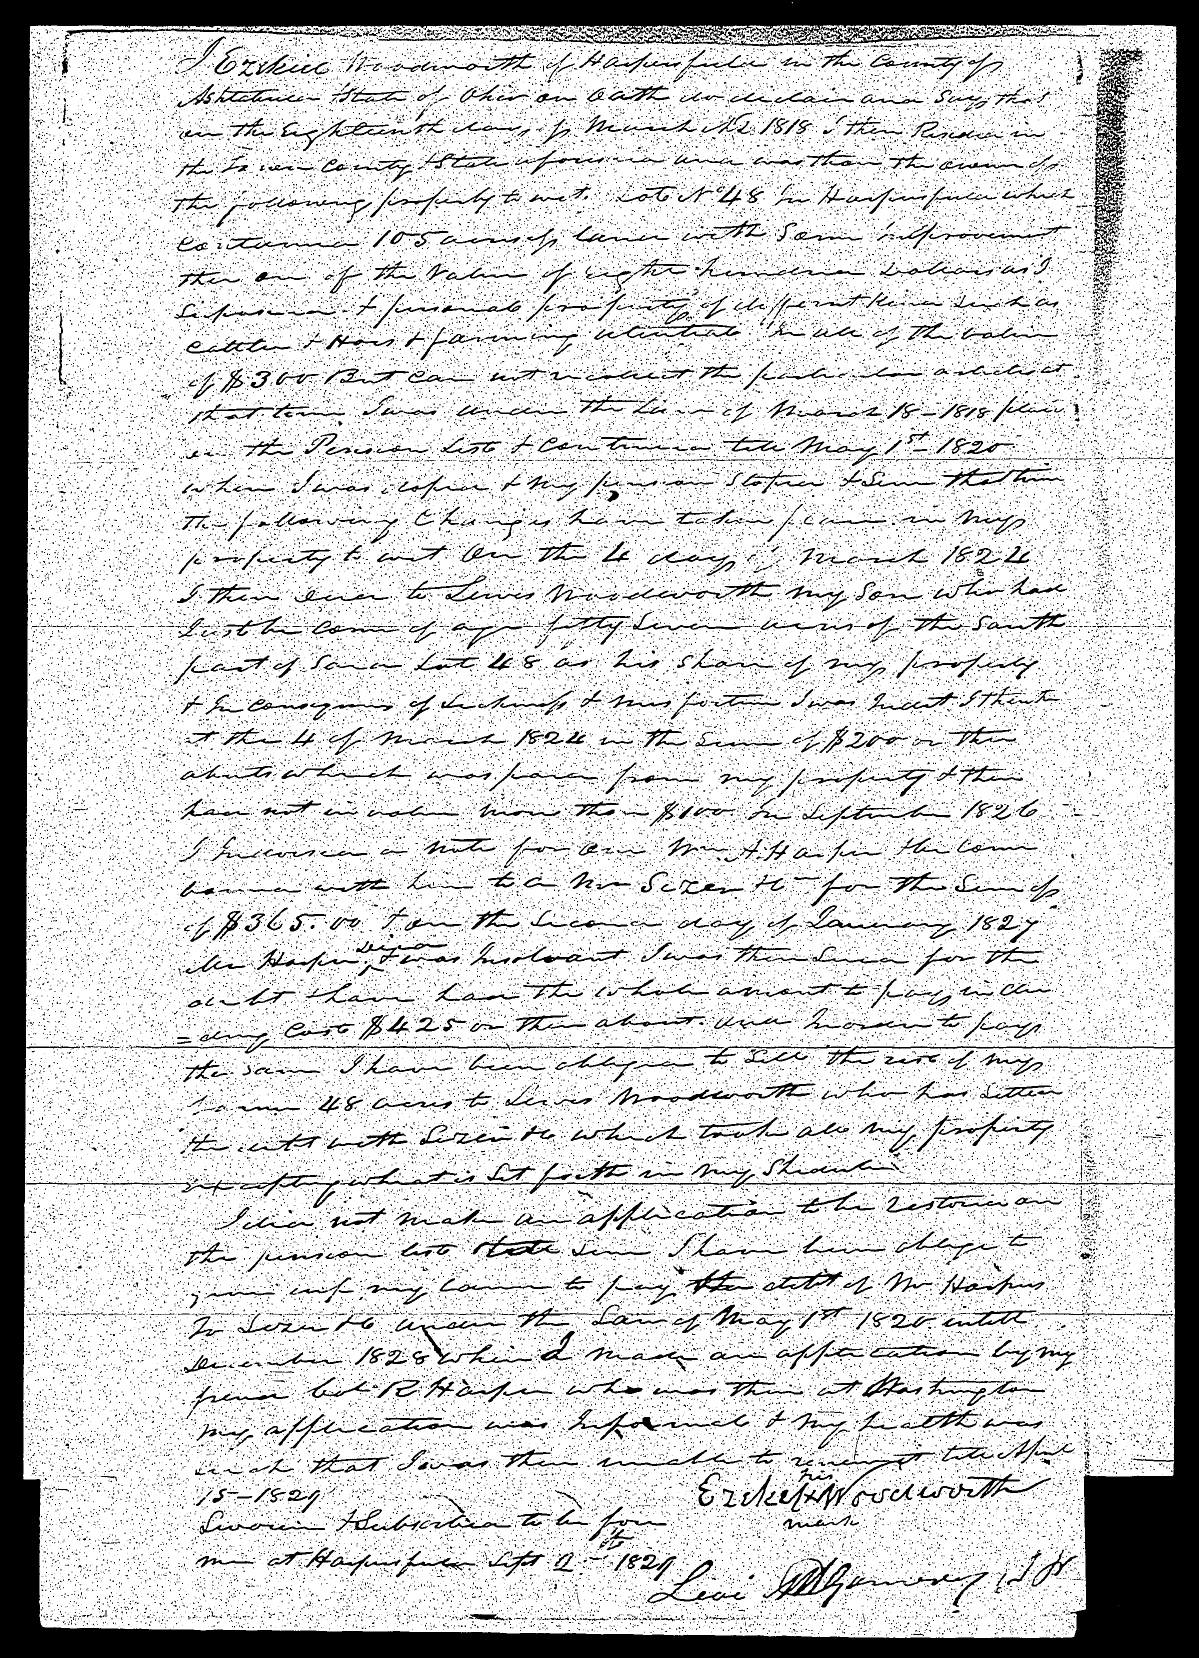 I Ezekiel Woodworth of Harpersfield in the County of
Ashtabula & State of Ohio on Oath do declair and Say that
on the Eighteenth day of March AD 1818 I then Resided in
the Town County & State aforesaid and was then the owner of
the following property to wit. Lot No 48 in Harpersfield which
contained 105 acres of land with Some improvement
then on of the Value of eight hundred dollars as I
Suposed & personal property of differnt kind such as
Cattle & Hors & farming utentials in all of the value
of $300 But can not recolect the particular articles at
that time I was under the Law of March 18 - 1818 place
on the Pension List & continued till May 1st - 1820
when I was droped & my pension Stoped & Sinc that time
the following changes have taken place in my
property to wit On the 4 day of March 1824
I then Deed to Lewis Woodworth my Son who had
Just be come of age fifty Seven acres of the South
part of Said Lot 48 as his Share of my property
& In consequnce of Sickness & misfortune I was Indet I think
at the 4 of March 1824 in the Sum of $200 or ther
abouts which was paid from my property & then
had not in value more than $100. In September 1826
I Indorsed a note for one Wm A. Harper the came
bound with him to a Mr Sezer & Co for the Sum of
of $365.00 & on the Second day of January 1827
Mr Harper died & was Insolvant I was then Sued for the
debt & have had the whole amont to pay in clu
=ding Cost $425 or ther about. and In order to pay
the Same I have been obliged to Sell the rest of my
Farm 48 acres to Lewis Woodworth who has Settled
the debt with Sezer & Co which took all my property
excepting what is Set forth in my Shedule
I did not make an application to be restored on
the pension list till Sinc I have been oblige to
give up my Land to pay the debt of Mr Harper
To Sezer & Co under the Law of May 1st 1820 untill
December 1828 when I made an application by my
friend Col R Harper who was then at Washington
my application was Informal & my health was
such that I was then unable to renew it till April
15 - 1829
his
Ezekiel X Woodworth
mark
Sworn & Subscribed to be fore
me at Harpersfield Sept 2th - 1829
Levi Montgomery J P